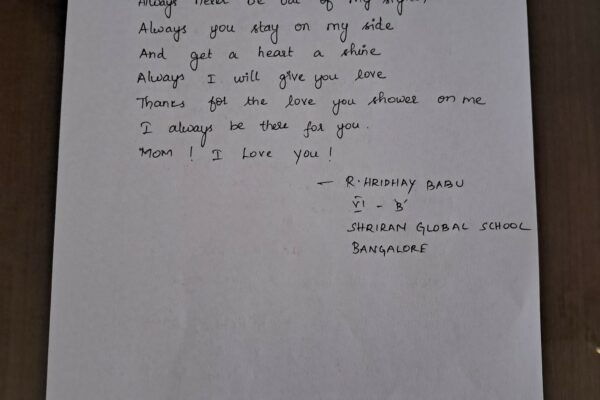 Always never be out of my sight,
Always you stay on my side
And get a heart a shine
Always I will give you love
Thanks for the love you shower on me
I always be there for you.
"MOM ! I Love You !
— R. HRIDHAY BABU
VI - 'B'
SHRIRAM GLOBAL SCHOOL
BANGALORE